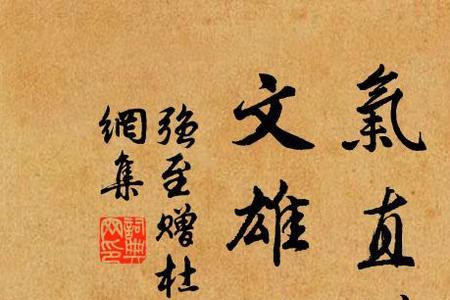 氣直
文雄
強至贈杜
網集
詞典
网印